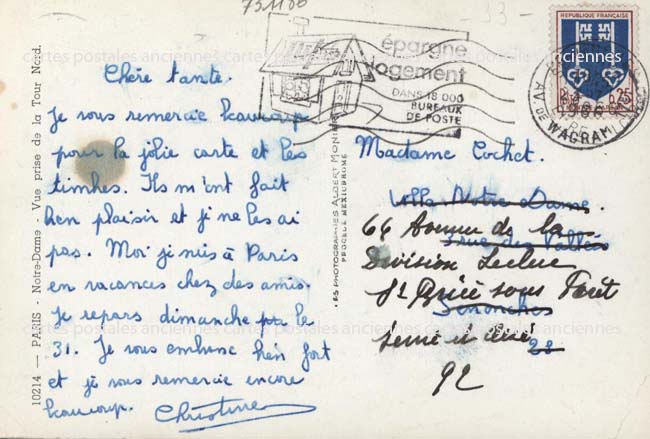 751100
- 93 -
épargne
logement
DANS 18 000
BUREAUX
DE POSTE
REPUBLIQUE FRANÇAISE
0,25
1966
AV. DE WAGRAM
cartes postales anciennes cartes postales anciennes cartes postales anciennes
Chère tante.
Je vous remercie beaucoup
pour la jolie carte et les
timbres. Ils m'ont fait
bien plaisir et je ne les ai
pas. Moi je suis à Paris
en vacances chez des amis.
Je repars dimanche le
31. Je vous embrasse bien fort
et je vous remercie encore
beaucoup. Christine
10214 — PARIS - Notre-Dame - Vue prise de la Tour Nord.
LES PHOTOGRAPHIES ALBERT MONIER
PROCÉDÉ MEXICHROME
Madame Cochet.
Villa Notre Dame.
66 Avenue de la
3 rue des Vallées
Division Leclerc
St Brice sous Forêt
Senonches
Seine et Oise
28
92
cartes postales anciennes cartes postales anciennes cartes postales anciennes